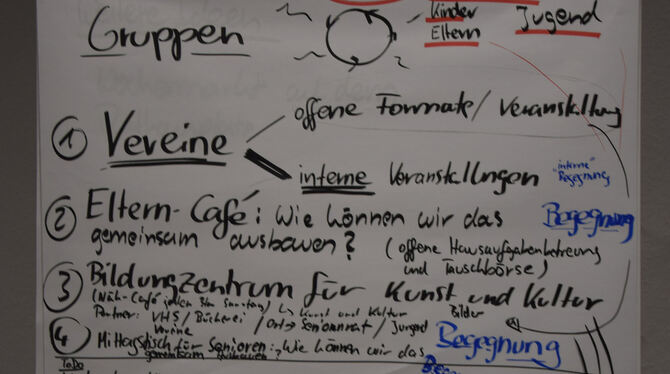 Gruppen
Kinder
Eltern
Jugend
① Vereine
offene Formate/Veranstaltung
interne Veranstaltungen
"interne" Begegnung
② Eltern-Café: Wie können wir das Begegnung
gemeinsam ausbauen? (offene Hausaufgabenbetreuung
und Tauschbörse)
③ Bildungzentrum für Kunst und Kultur
(Näh-Café jeden Samstag) Kunst und Kultur Bilder
Partner: VHS/Bücherei / Seniorenrat / Jugend
Vereine
④ Mittagstisch für Senioren: Wie können wir das Begegnung
gemeinsam ausbauen
ToDo